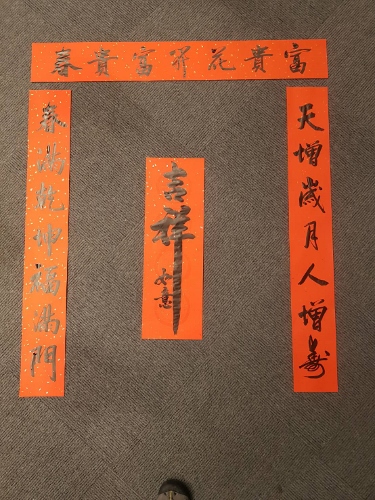 富貴花開富貴春
天增歲月人增壽
吉祥
如意
春滿乾坤福滿門